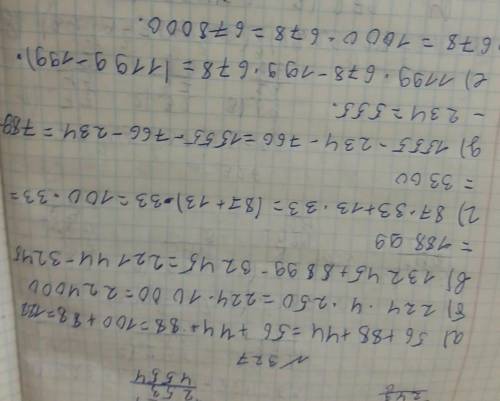 253
4554
№ 327
а) 56+88+44=56+44+88=100+88=188
б) 224·4·250=224·1000=224000
в) 13245+8899-3245=22144-3245
=18899
г) 87·33+13·33=(87+13)·33=100·33=
=3300
д) 1555-234-766=1555-766-234=789
-234=555.
е) 1199·678-199·678=(1199-199)·
·678=1000·678=678000.